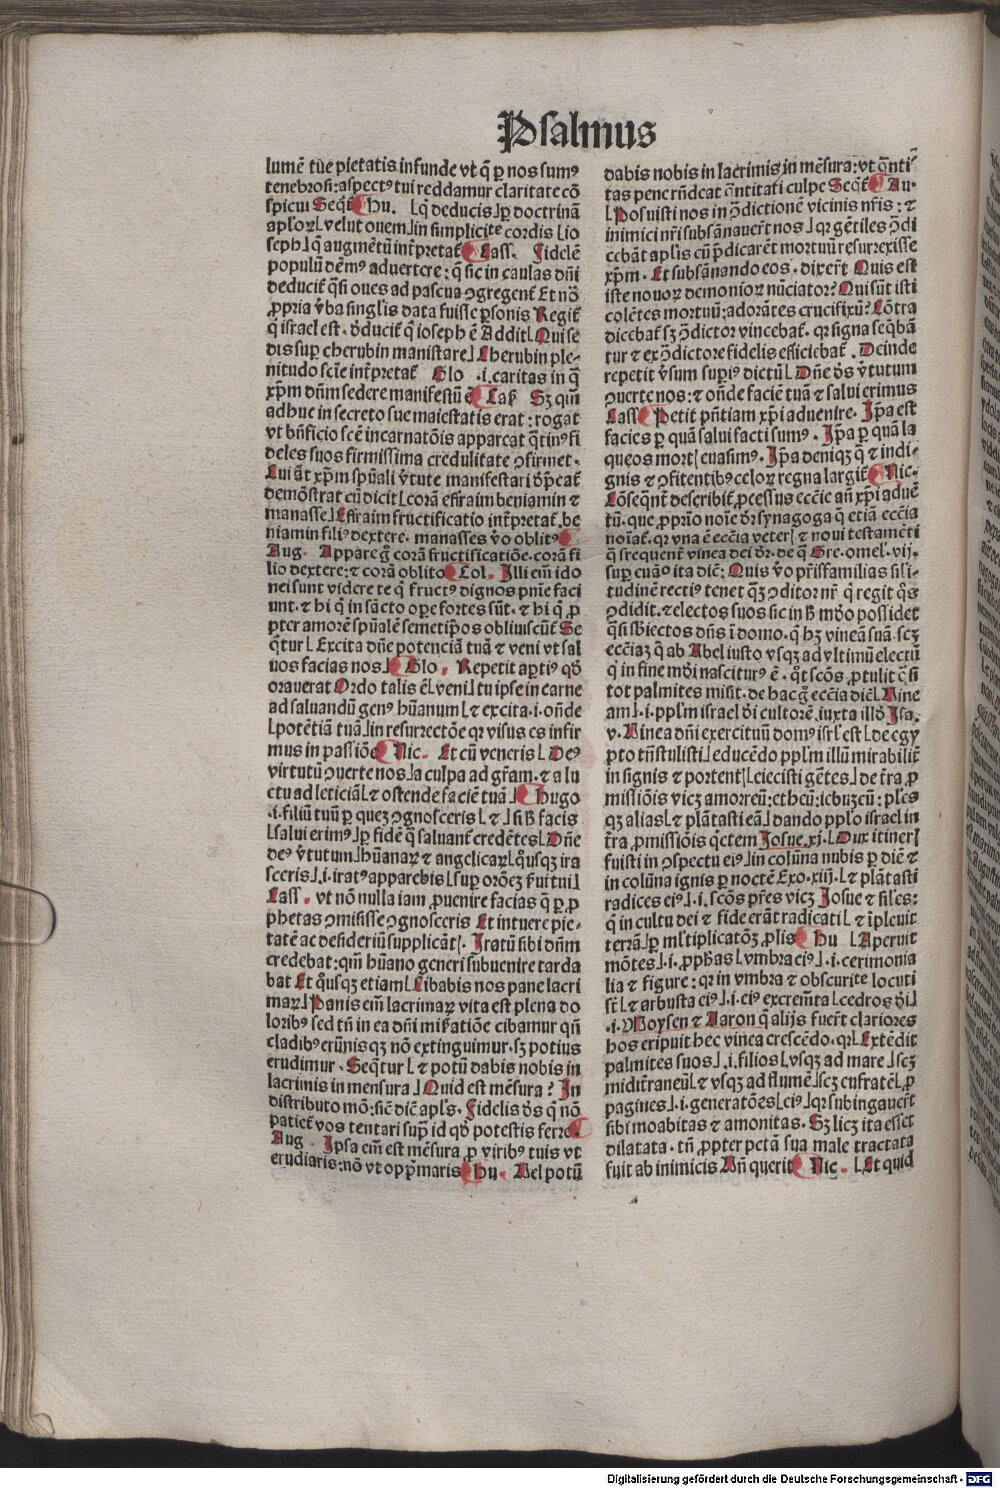 Psalmus
lumē tue pietatis infunde vt q̄ ꝑ nos sumꝰ
tenebrosi: aspectꝰ tui reddamur claritate cō
spicui Seqt̄ Hu. ⌊q̇ deducis⌋ ꝑ doctrinā
apl'oꝝ ⌊velut ouem⌋ in simplicite cordis ⌊io
seph⌋ q̇ augmētū int̄pretat̄ Cass. Fidelē
populū dēmꝰ aduertere: q̄ sic in caulas dn̄i
deducit̄ q̄si oues ad pascua ꝯgregent̄ Et nō
ꝓpria v̄ba singl'is data fuisse ꝑsonis Regit̄
q̇ israel est. ⁊ducit̄ q̇ ioseph ē Addit ⌊Qui se
dis suꝑ cherubin manistare⌋ Cherubin ple-
nitudo scīe int̄pretat̄ Glo .i. caritas in q̄
xp̄m dn̄m sedere manifestū ē Cass Sꝫ qm̄
adhuc in secreto sue maiestatis erat: rogat
vt bn̄ficio scē incarnatōis appareat q̄tinꝰ fi
deles suos firmissima credulitate ꝯfirmet.
Cui āt xp̄m spūali v̄tute manifestari dēpcat̄
demōstrat cū dicit ⌊corā effraim beniamin ⁊
manasse⌋ Effraim fructificatio int̄pretat̄. be
niamin filiꝰ dextere. manasses v̄o oblitꝰ
Aug. Appare gͦ corā fructificatiōe. corā fi
lio dextere: ⁊ corā oblito Col. Illi em̄ ido
nei sunt videre te q̇ fructꝰ dignos pn̄ie faci
unt. ⁊ hi q̇ in sācto oꝑe fortes sūt. ⁊ hi q̇ ꝓ
pter amorē spūalē semetip̄os obliuiscūt̄ Se
q̄tur ⌊Excita dn̄e potenciā tuā ⁊ veni vt sal
uos facias nos⌋ Glo. Repetit aptiꝰ qd̄
orauerat Ordo talis ē ⌊veni⌋ tu ipse in carne
ad saluandū genꝰ hūanum ⌊⁊ excita .i. on̄de
⌊potētiā tuā⌋ in resurrectōe qꝛ visus es infir
mus in passiōe Nic. Et cū veneris ⌊Deꝰ
virtutū ꝯuerte nos⌋ a culpa ad gr̄am. ⁊ a lu
ctu ad leticiā ⌊⁊ ostende faciē tuā⌋ Hugo
.i. filiū tuū ꝑ quez ꝯgnosceris ⌊⁊⌋ si h̄ facis
⌊salui erimꝰ⌋ ꝑ fidē q̄ saluant̄ credētes ⌊Dn̄e
deꝰ v̄tutum⌋ hūanaꝝ ⁊ angelicaꝝ ⌊q̄usqꝫ ira
sceris⌋ .i. iratꝰ apparebis ⌊suꝑ orōeꝫ f̄ui tui⌋
Cass. vt nō nulla iam ꝓuenire facias q̄ ꝑ ꝓ
phetas ꝯmisisse ꝯgnosceris Et intuere pie-
tatē ac desideriū supplicātꝭ. Iratū sibi dn̄m
credebat: qm̄ hūano generi subuenire tarda
bat Et q̄usqꝫ etiam ⌊Cibabis nos pane lacri
maꝝ⌋ Panis em̄ lacrimaꝝ vita est plena do
loribꝰ sed tn̄ in ea dn̄i miẜatiōe cibamur qn̄
cladibꝰ erūnisqꝫ nō extinguimur. sꝫ potius
erudimur. Seq̄tur ⌊⁊ potū dabis nobis in
lacrimis in mensura⌋ Quid est mēsura? In
distributo mō: sic̄ dic̄ apl's. Fidelis d̄s q̇ nō
patiet̄ vos tentari supͣ id qd̄ potestis ferre.
Aug. Ipsa em̄ est mēsura ꝓ viribꝰ tuis vt
erudiaris: nō vt oppͥmaris Hu. Uel potū
dabis nobis in lacrimis in mēsura: vt q̄nti-
tas pene rn̄deat q̄ntitati culpe Seqt̄ Au.
⌊Posuisti nos in ꝯdictionē vicinis nr̄is: ⁊
inimici nr̄i subsānauer̄t nos⌋ qꝛ gētiles ꝯdi
cebāt apl'is cū p̄dicarēt mortuū resurrexisse
xp̄m. Et subsānando eos. dixer̄t Quis est
iste nouoꝝ demonioꝝ nūciator? Qui sūt isti
colētes mortuū: adorātes crucifixū? Cōtra
dicebat̄ sꝫ ꝯdictor vincebat̄. qꝛ signa seq̄bā
tur ⁊ ex ꝯdictore fidelis efficiebat̄. Deinde
repetit v̄sum supͥꝰ dictū ⌊Dn̄e d̄s v̄tutum
ꝯuerte nos: ⁊ on̄de faciē tuā ⁊ salui erimus
Cass Petit pn̄tiam xp̄i aduenire. Ip̄a est
facies ꝑ quā salui facti sumꝰ. Ip̄a ꝑ quā la
queos mortꝭ euasimꝰ. Ip̄a deniqꝫ q̄ ⁊ indi-
gnis ⁊ ꝯfitentibꝰ celoꝝ regna largit̄ Nic.
Cōseqn̄t̄ describit̄ ꝓcessus eccīe an̄ xp̄i aduē
tū. que ꝓprͥo noīe dr̄ synagoga q̄ etiā eccīa
noīat̄. qꝛ vna ē eccīa veterꝭ ⁊ noui testamēti
q̄ frequent̄ vinea dei dr̄. de q̄ Gre. omel. vij.
suꝑ euāͦ ita dic̄: Quis v̄o pr̄isfamilias sil'i-
tudinē rectiꝰ tenet q̄ꝫ ꝯditor nr̄ q̇ regit qͦs
ꝯdidit. ⁊ electos suos sic in h̄ mūdo possidet
q̄si sb̄iectos dn̄s ī domo. q̇ hꝫ vineā suā. scꝫ
ecc̄iaꝫ q̄ ab Abel iusto vsqꝫ ad vltimū electū
q̇ in fine mūdi nasciturꝰ ē. q̄t scōs ꝓtulit q̄si
tot palmites misit. de hac gͦ ecc̄ia dic̄ ⌊Uine
am⌋ .i. pp̄l'm israel dī cultorē. iuxta illd̄ Isa.
v. Uinea dn̄i exercituū domꝰ isrl' est ⌊de egy
pto trāstulisti⌋ educēdo pp̄l'm illū mirabilit̄
in signis ⁊ portentꝭ ⌊eiecisti gētes⌋ de t̄ra ꝓ
missiōis vicꝫ amorreū: etheū: iebuzeū: pl'es
qꝫ alias ⌊⁊ plātasti eā⌋ dando pp̄lo israel in
t̄ra ꝓmissiōis q̇etem Iosue. xj. ⌊Dux itinerꝭ
fuisti in ꝯspectu eiꝰ⌋ in colūna nubis ꝑ diē ⁊
in colūna ignis ꝑ noctē Exo. xiij. ⌊⁊ plātasti
radices eiꝰ⌋ .i. scōs pr̄es vicꝫ Iosue ⁊ sil'es:
q̇ in cultu dei ⁊ fide erāt radicati ⌊⁊ īpleuit
terrā⌋ ꝑ ml'tiplicatōꝫ ꝓlis Hu ⌊Aperuit
mōtes⌋ .i. ꝓph̄as ⌊vmbra eiꝰ⌋ .i. cerimonia
lia ⁊ figure: qꝛ in vmbra ⁊ obscurite locuti
st̄ ⌊⁊ arbusta eiꝰ⌋ .i. eiꝰ excrem̄ta ⌊cedros dī⌋
.i. Moysen ⁊ Aaron q̄ alijs fuer̄t clariores
hos eripuit hec vinea crescēdo. qꝛ ⌊Extēdit
palmites suos⌋ .i. filios ⌊vsqꝫ ad mare⌋ scꝫ
midit̄raneū ⌊⁊ vsqꝫ ad flumē⌋ scꝫ eufratē ⌊ꝓ
pagines⌋ .i. generatōes ⌊eiꝰ⌋ qꝛ subingauer̄t
sibi moabitas ⁊ amonitas. Sꝫ licꝫ ita esset
dilatata. tn̄ ꝓpter petā sua male tractata
fuit ab inimicis Un̄ querit Nic. ⌊Et quid
Digitalisierung gefördert durch die Deutsche Forschungsgemeinschaft - DFG